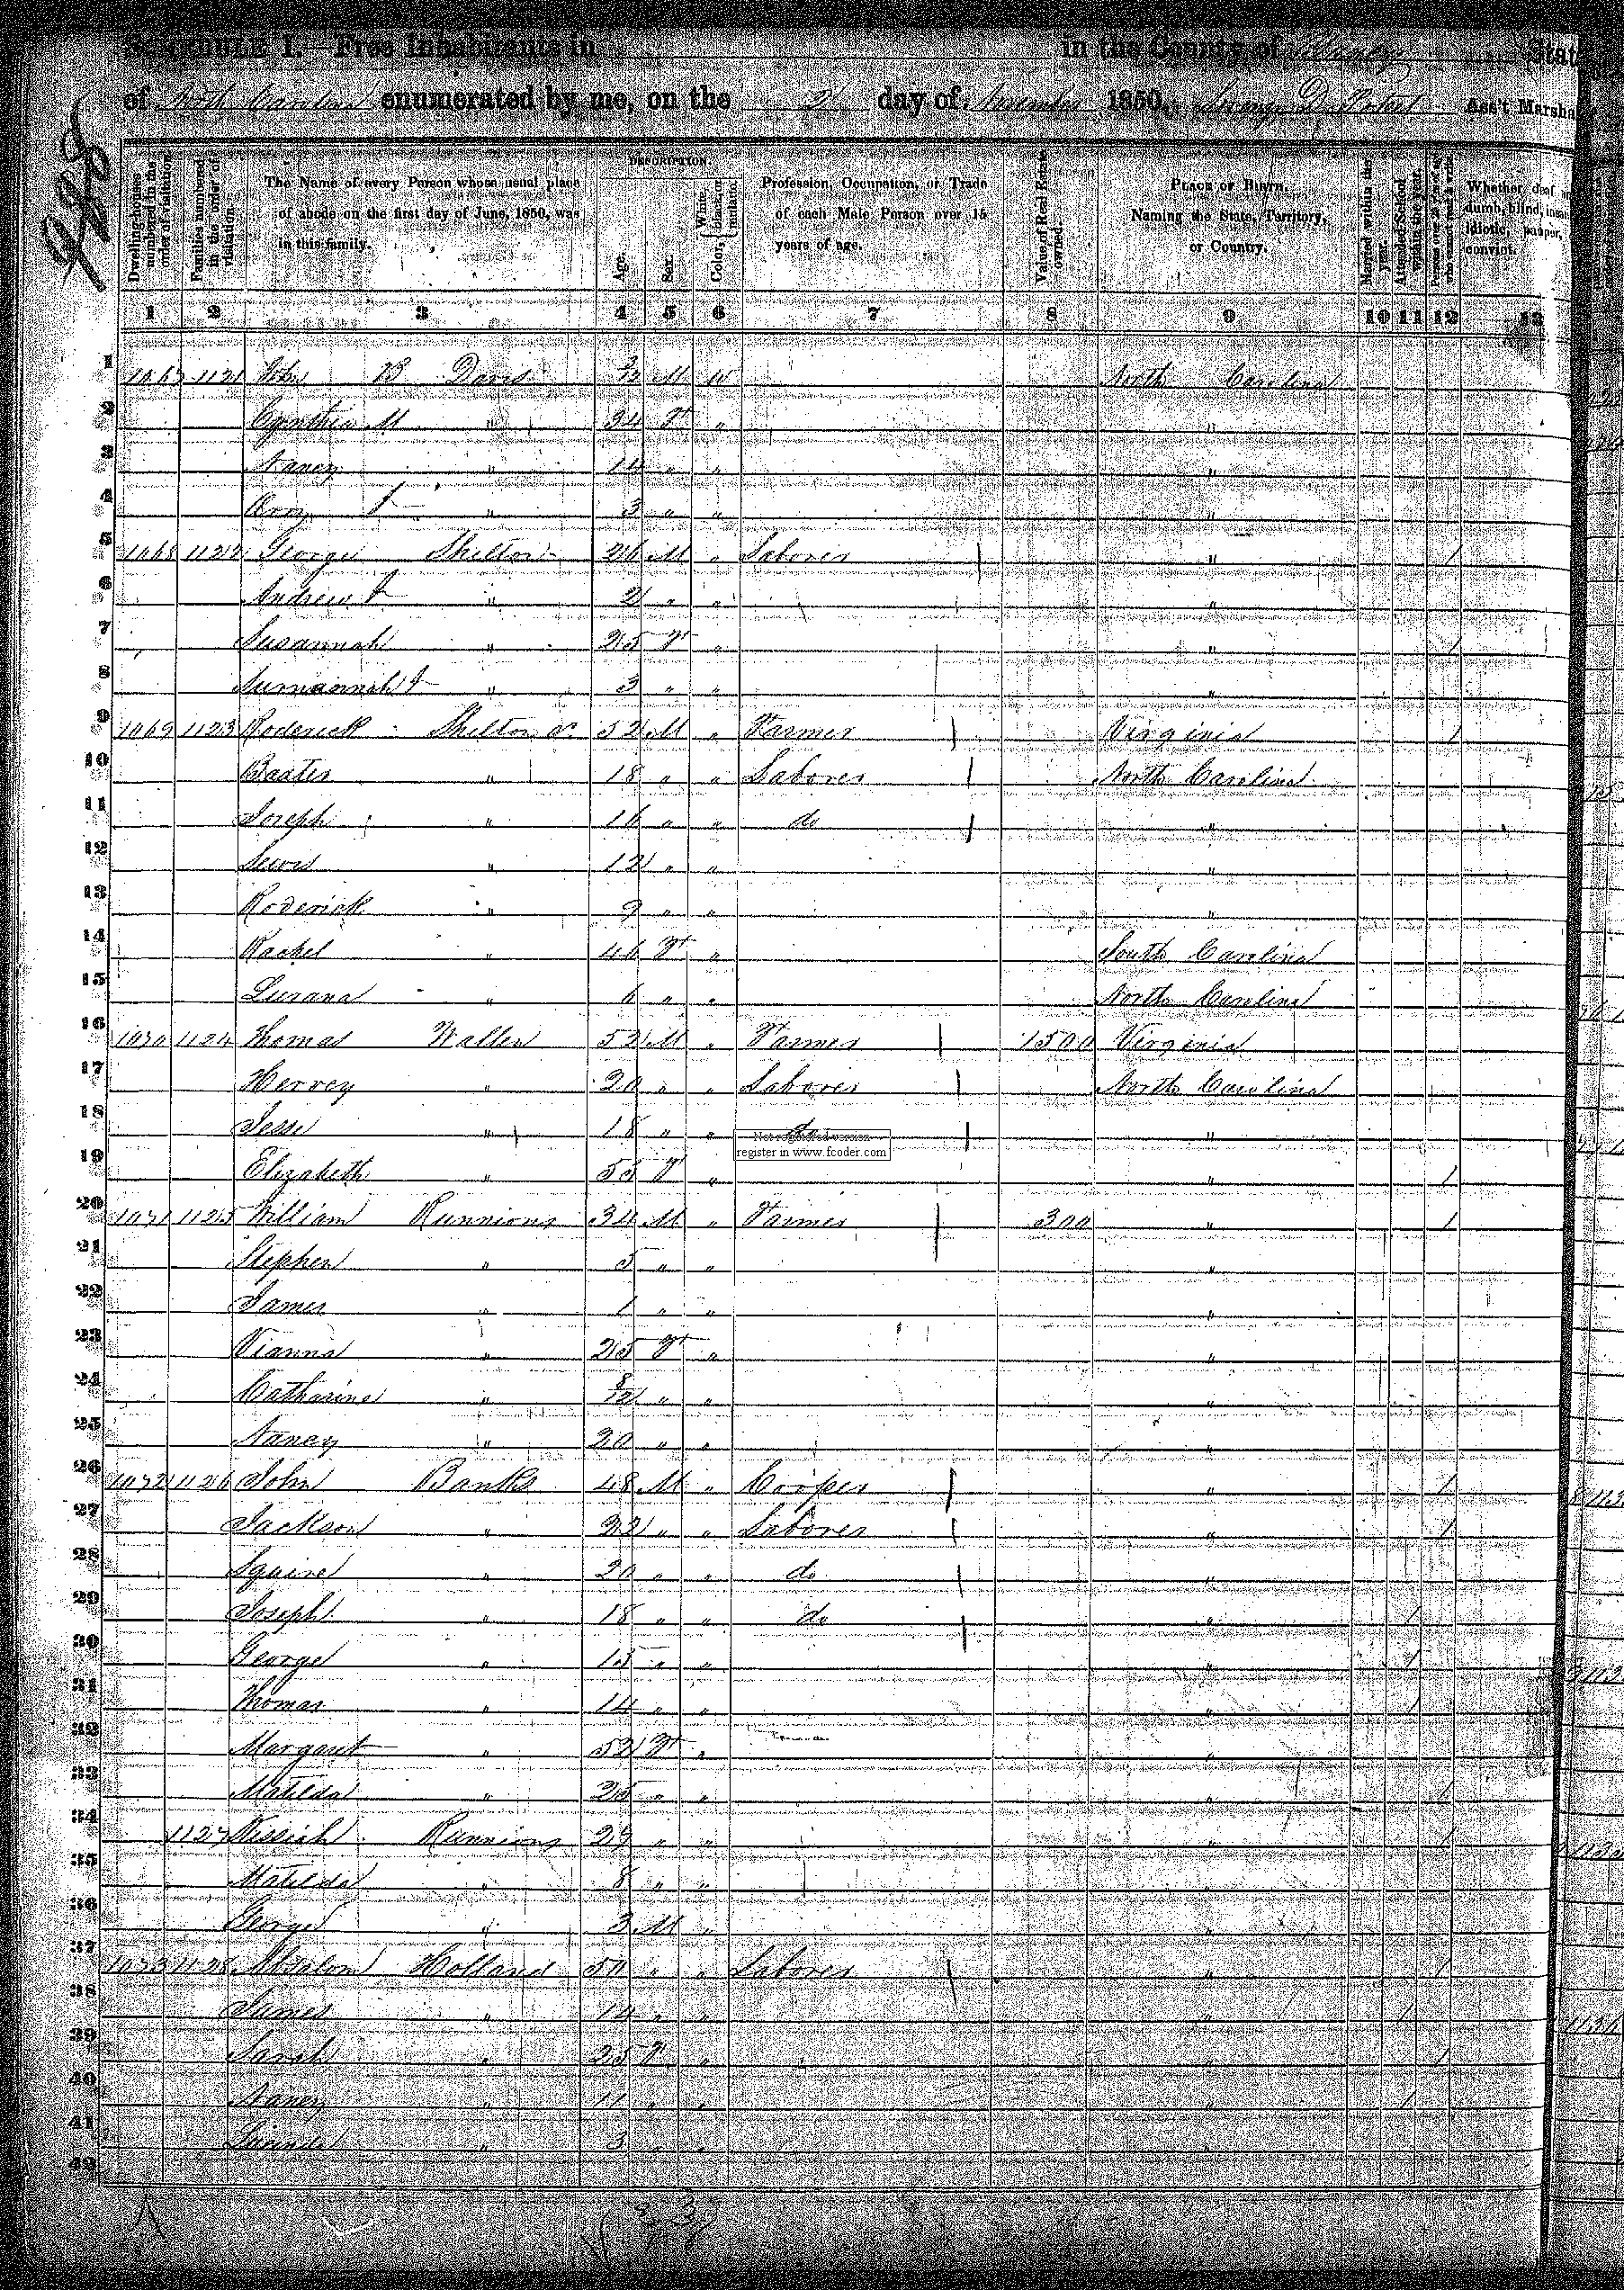 SCHEDULE I.—Free Inhabitants in in the County of Yancey State
of North Carolina enumerated by me, on the 2 day of November 1850. Ass't Marsha
DESCRIPTION.
Dwelling-houses numbered in the order of visitation.
Families numbered in the order of visitation.
The Name of every Person whose usual place
of abode on the first day of June, 1850, was
in this family.
Age.
Sex.
Color, White, black, or mulatto.
Profession, Occupation, or Trade
of each Male Person over 15
years of age.
Value of Real Estate owned.
PLACE OF BIRTH.
Naming the State, Territory,
or Country.
Married within the year.
Attended School within the year.
Persons over 20 y'rs of age who cannot read & write.
Whether deaf and
dumb, blind, insane
idiotic, pauper,
convict.
1 2 3 4 5 6 7 8 9 10 11 12 13
1 1067 1121 John B Davis 3/12 M W North Carolina
2 Cynthia M " 34 F " "
3 Nancy " 14 " " "
4 " 3 " " "
5 1068 1122 George Shelton 26 M " Laborer " 1
6 Andrew " 2 " " "
7 Susannah " 25 F " " 1
8 " 3 " " "
9 1069 1123 Roderick Shelton 52 M " Farmer Virginia 1
10 Baxter " 18 " " Laborer North Carolina
11 Joseph " 16 " " do "
12 Lewis " 12 " " "
13 Roderick " 9 " " "
14 Rachel " 46 F " South Carolina
15 Lurana " 6 " " North Carolina
16 1070 1124 Thomas Wallen 52 M " Farmer 1500 Virginia
17 Hervey " 20 " " Laborer North Carolina
18 Jesse " 18 " " do "
Not registered version
register in www.fcoder.com
19 Elizabeth " 55 F " " 1
20 1071 1125 William Runnions 34 M " Farmer 300 " 1
21 Stephen " 5 " " "
22 James " 1 " " "
23 Vianna " 25 F " "
24 Catharine " 8/12 " " "
25 Nancy " 20 " " "
26 1072 1126 John Banks 48 M " Cooper " 1
27 Jackson " 22 " " Laborer " 1
28 Squire " 20 " " do "
29 Joseph " 18 " " do " 1
30 George " 15 " " " 1
31 Thomas " 14 " " " 1
32 Margaret " 52 F " "
33 Matilda " 25 " " " 1
34 1127 Kissiah Runnions 29 " " " 1
35 Matilda " 8 " " "
36 George " 3 M " "
37 1073 1128 Absalom Holland 50 " " Laborer " 1
38 James " 14 " " " 1
39 Sarah " 25 F " " 1
40 Nancy " 11 " " " 1
41 " 3 " " "
42